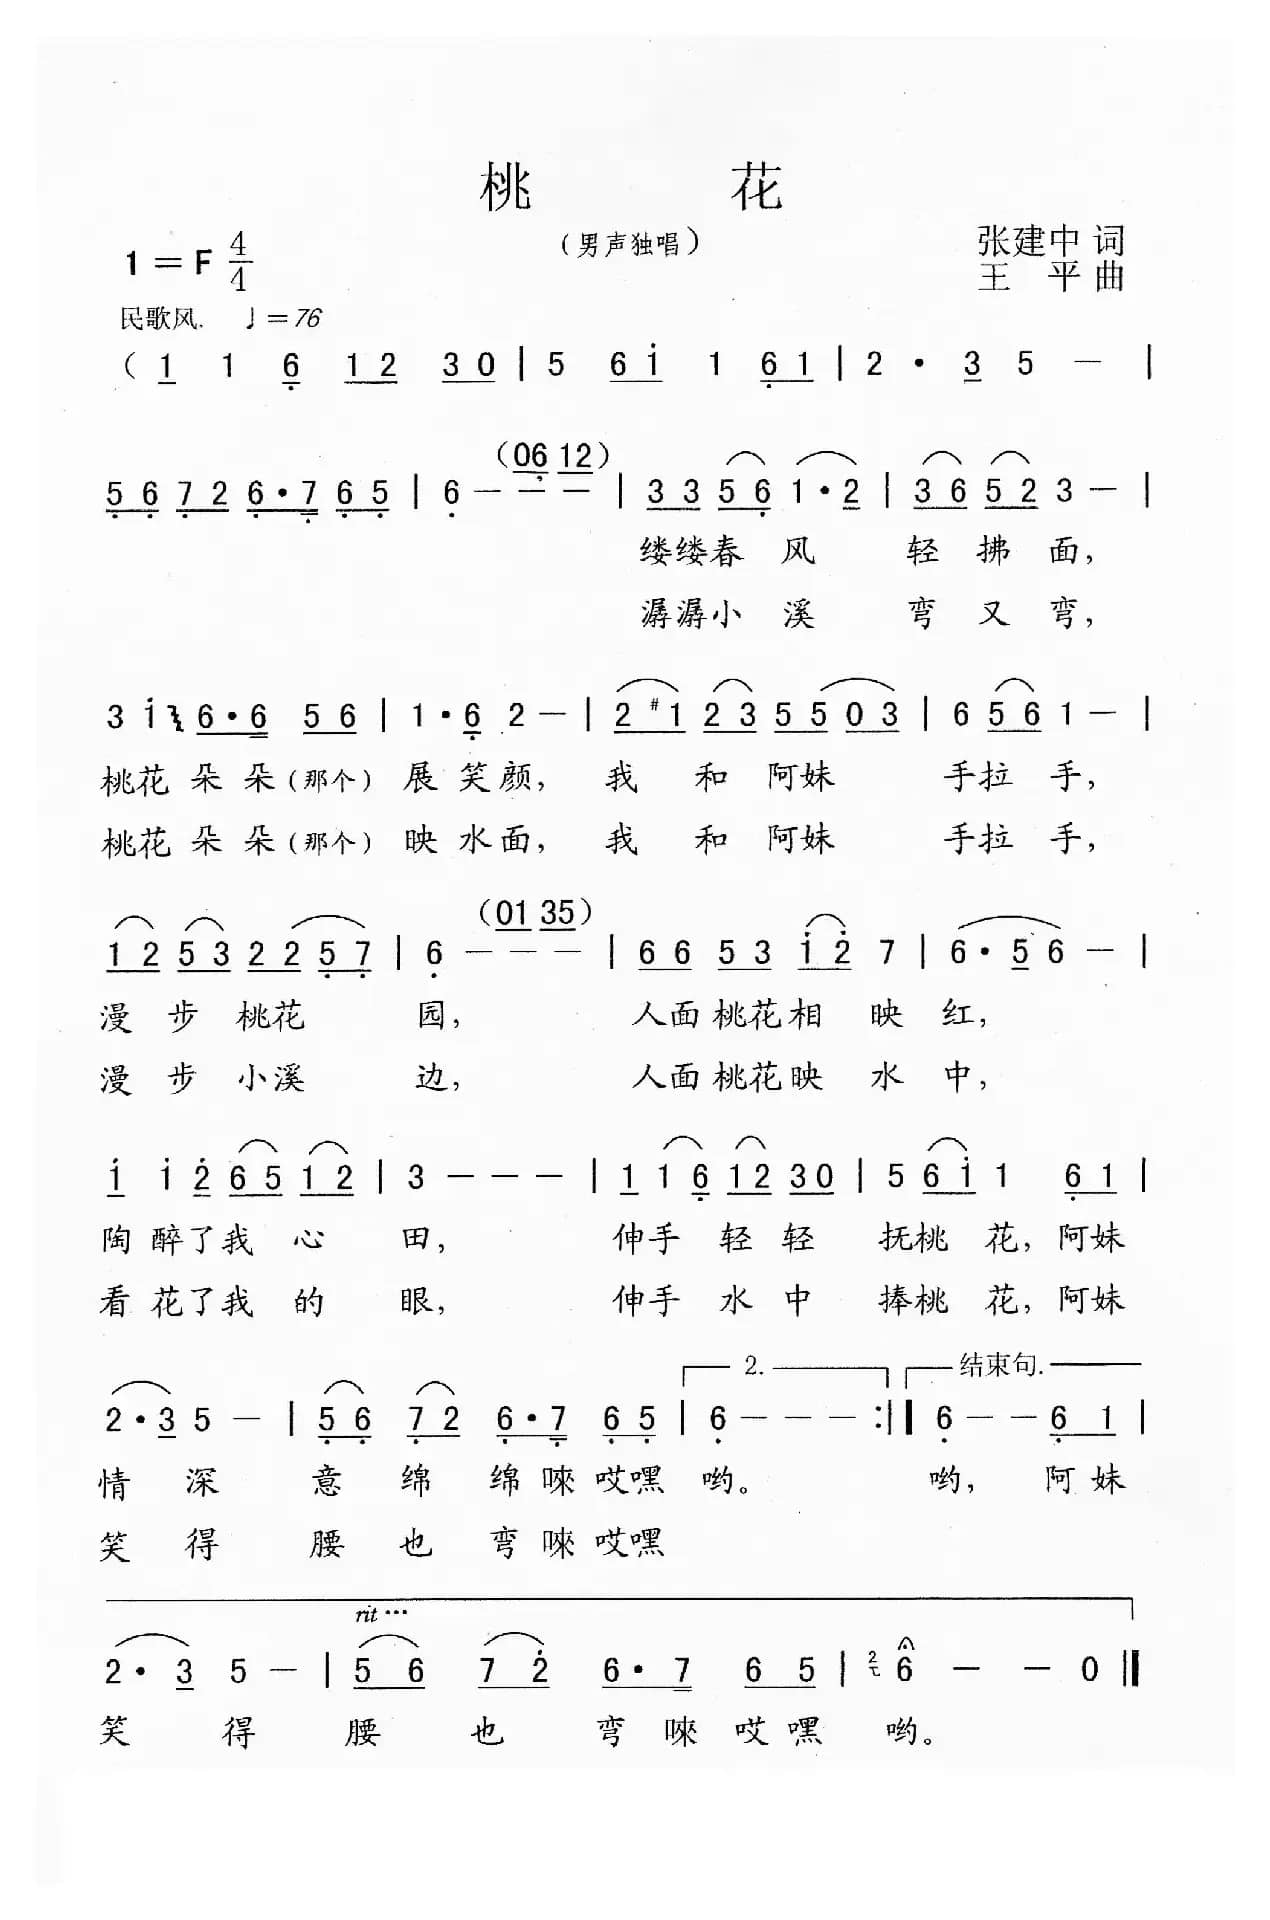 桃 花
（男声独唱）
1=F 4/4
张建中 词
王 平 曲
民歌风. ♩=76
（1 1 6 12 30 | 5 6i 1 61 | 2 · 3 5 — |
（06 12）
56 72 6·7 65 | 6 — — — | 33 56 1·2 | 36 52 3 — |
缕缕春 风 轻 拂 面，
潺潺小 溪 弯 又 弯，
3 i 6·6 56 | 1·6 2 — | 2#1 23 55 03 | 6 56 1 — |
桃花 朵 朵（那个）展 笑颜， 我 和 阿妹 手拉 手，
桃花 朵 朵（那个）映 水面， 我 和 阿妹 手拉 手，
（01 35）
12 53 22 57 | 6 — — — | 66 53 i2 7 | 6·56 — |
漫 步 桃花 园， 人面 桃花相 映 红，
漫 步 小溪 边， 人面 桃花映 水 中，
i i 2 65 12 | 3 — — — | 1 1 6 12 30 | 5 6i 1 61 |
陶 醉了我 心 田， 伸手 轻 轻 抚桃 花，阿妹
看 花了我 的 眼， 伸手 水 中 捧桃 花，阿妹
2. 结束句.
2·3 5 — | 56 72 6·7 65 | 6 — — — :|| 6 — — 61 |
情 深 意 绵 绵 唻 哎嘿 哟。 哟， 阿妹
笑 得 腰 也 弯 唻 哎嘿
rit···
2·3 5 — | 56 72 6·7 65 | 2 7 6 — — 0 ||
笑 得 腰 也 弯 唻 哎嘿 哟。